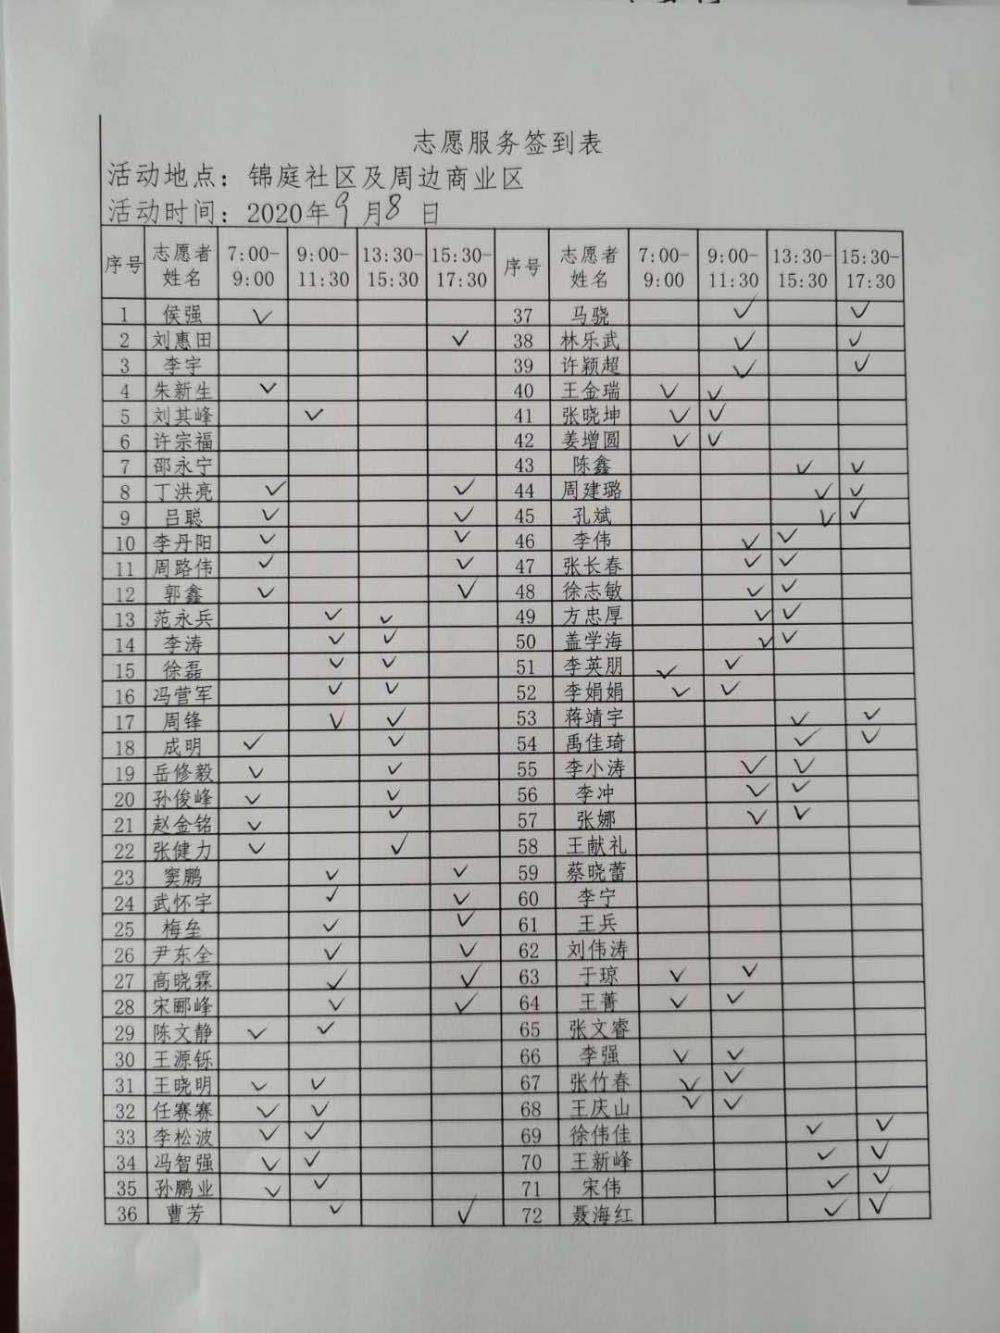 志愿服务签到表
活动地点：锦庭社区及周边商业区
活动时间：2020年9月8日
序号 志愿者姓名 7:00-9:00 9:00-11:30 13:30-15:30 15:30-17:30 序号 志愿者姓名 7:00-9:00 9:00-11:30 13:30-15:30 15:30-17:30
1 侯强 ✓ 37 马骁 ✓ ✓
2 刘惠田 ✓ 38 林乐武 ✓ ✓
3 李宇 39 许颖超 ✓ ✓
4 朱新生 ✓ 40 王金瑞 ✓ ✓
5 刘其峰 ✓ 41 张晓坤 ✓ ✓
6 许宗福 42 姜增圆 ✓ ✓
7 邵永宁 43 陈鑫 ✓ ✓
8 丁洪亮 ✓ ✓ 44 周建璐 ✓ ✓
9 吕聪 ✓ ✓ 45 孔斌 ✓ ✓
10 李丹阳 ✓ ✓ 46 李伟 ✓ ✓
11 周路伟 ✓ ✓ 47 张长春 ✓ ✓
12 郭鑫 ✓ ✓ 48 徐志敏 ✓ ✓
13 范永兵 ✓ ✓ 49 方忠厚 ✓ ✓
14 李涛 ✓ ✓ 50 盖学海 ✓ ✓
15 徐磊 ✓ ✓ 51 李英朋 ✓ ✓
16 冯营军 ✓ ✓ 52 李娟娟 ✓ ✓
17 周锋 ✓ ✓ 53 蒋靖宇 ✓ ✓
18 成明 ✓ ✓ 54 禹佳琦 ✓ ✓
19 岳修毅 ✓ ✓ 55 李小涛 ✓ ✓
20 孙俊峰 ✓ ✓ 56 李冲 ✓ ✓
21 赵金铭 ✓ ✓ 57 张娜 ✓ ✓
22 张健力 ✓ ✓ 58 王献礼
23 窦鹏 ✓ ✓ 59 蔡晓蕾
24 武怀宇 ✓ ✓ 60 李宁
25 梅垒 ✓ ✓ 61 王兵
26 尹东全 ✓ ✓ 62 刘伟涛
27 高晓霖 ✓ ✓ 63 于琼 ✓ ✓
28 宋郦峰 ✓ ✓ 64 王菁 ✓ ✓
29 陈文静 ✓ ✓ 65 张文睿
30 王源铄 66 李强 ✓ ✓
31 王晓明 ✓ ✓ 67 张竹春 ✓ ✓
32 任赛赛 ✓ ✓ 68 王庆山 ✓ ✓
33 李松波 ✓ ✓ 69 徐伟佳 ✓ ✓
34 冯智强 ✓ ✓ 70 王新峰 ✓ ✓
35 孙鹏业 ✓ ✓ 71 宋伟 ✓ ✓
36 曹芳 ✓ ✓ 72 聂海红 ✓ ✓